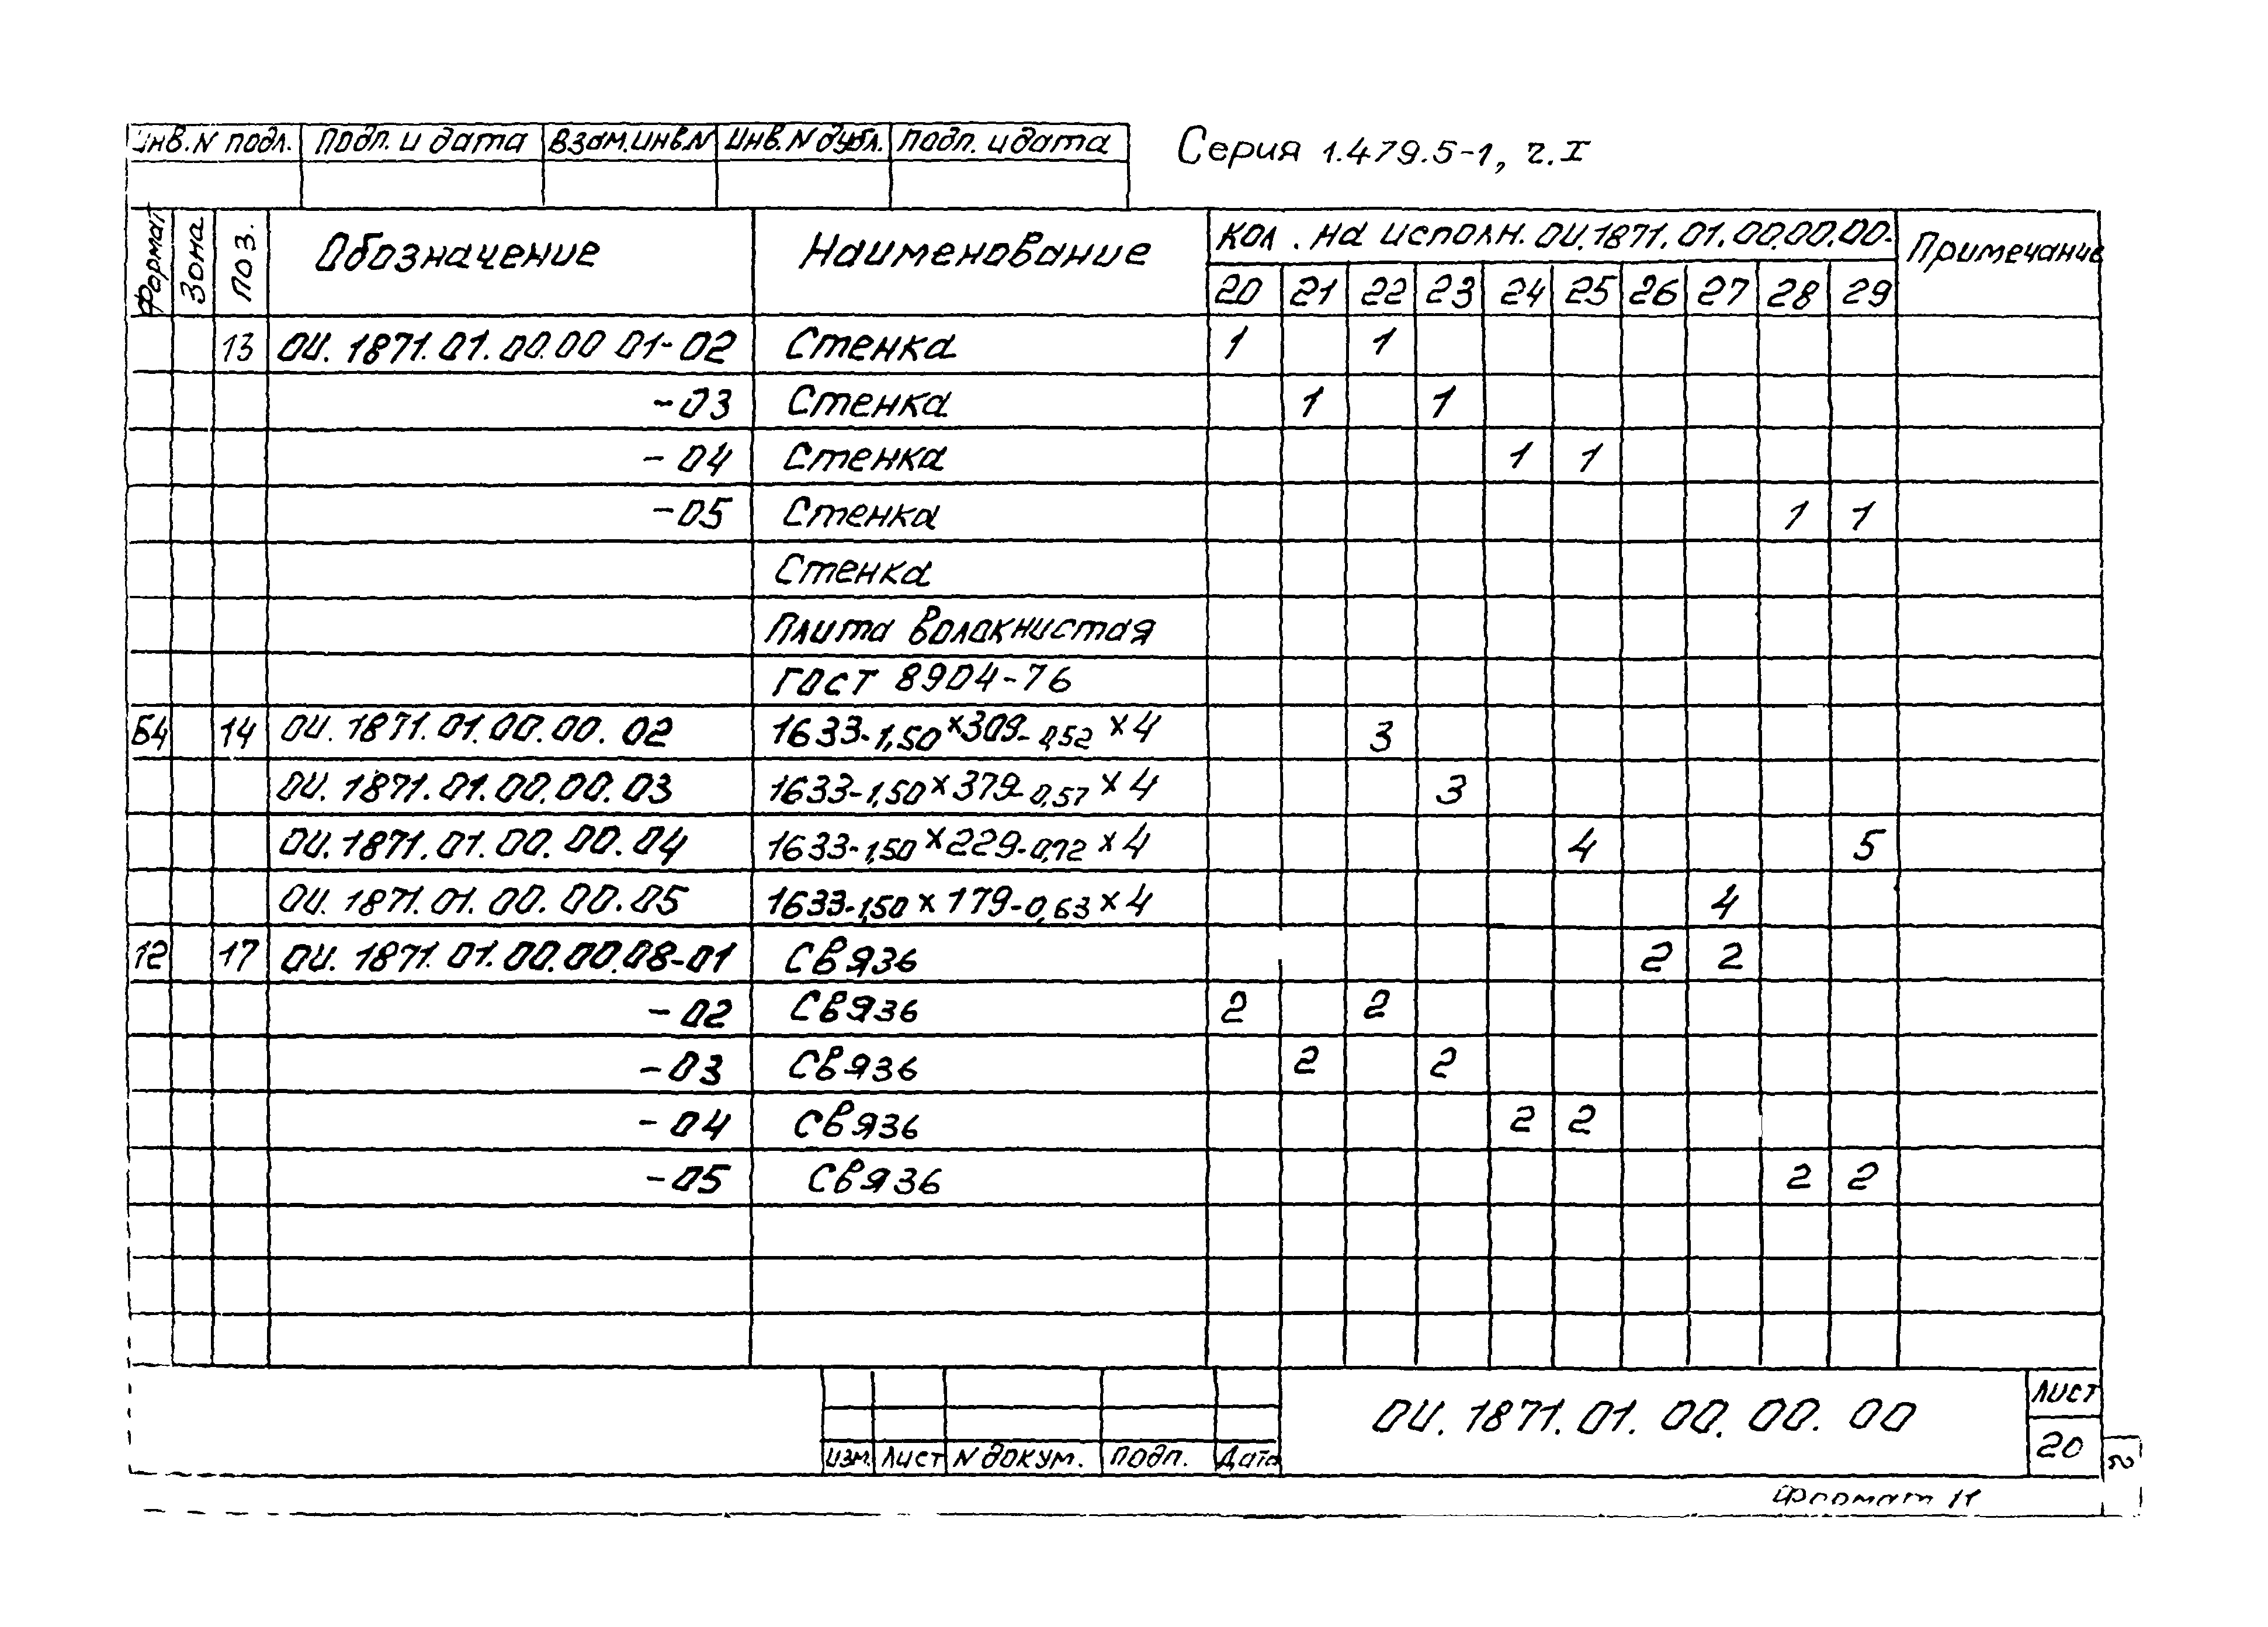 Инв.N подл. Подп. и дата Взам.инв.N Инв.N дубл. Подп. и дата
Серия 1.479.5-1, ч.I
Формат Зона Поз. Обозначение Наименование Кол. на исполн. ОИ.1871.01.00.00.00- Примечание
20 21 22 23 24 25 26 27 28 29
13 ОИ.1871.01.00.00 01-02 Стенка 1 1
-03 Стенка 1 1
-04 Стенка 1 1
-05 Стенка 1 1
Стенка
Плита волокнистая
ГОСТ 8904-76
Б4 14 ОИ.1871.01.00.00.02 1633-1,50×309-,52×4 3
ОИ.1871.01.00.00.03 1633-1,50×379-0,57×4 3
ОИ.1871.01.00.00.04 1633-1,50×229-0,72×4 4 5
ОИ.1871.01.00.00.05 1633-1,50×179-0,63×4 4
12 17 ОИ.1871.01.00.00.08-01 Связь 2 2
-02 Связь 2 2
-03 Связь 2 2
-04 Связь 2 2
-05 Связь 2 2
Изм. Лист N докум. Подп. Дата
ОИ.1871.01.00.00.00
Лист
20
Формат 11